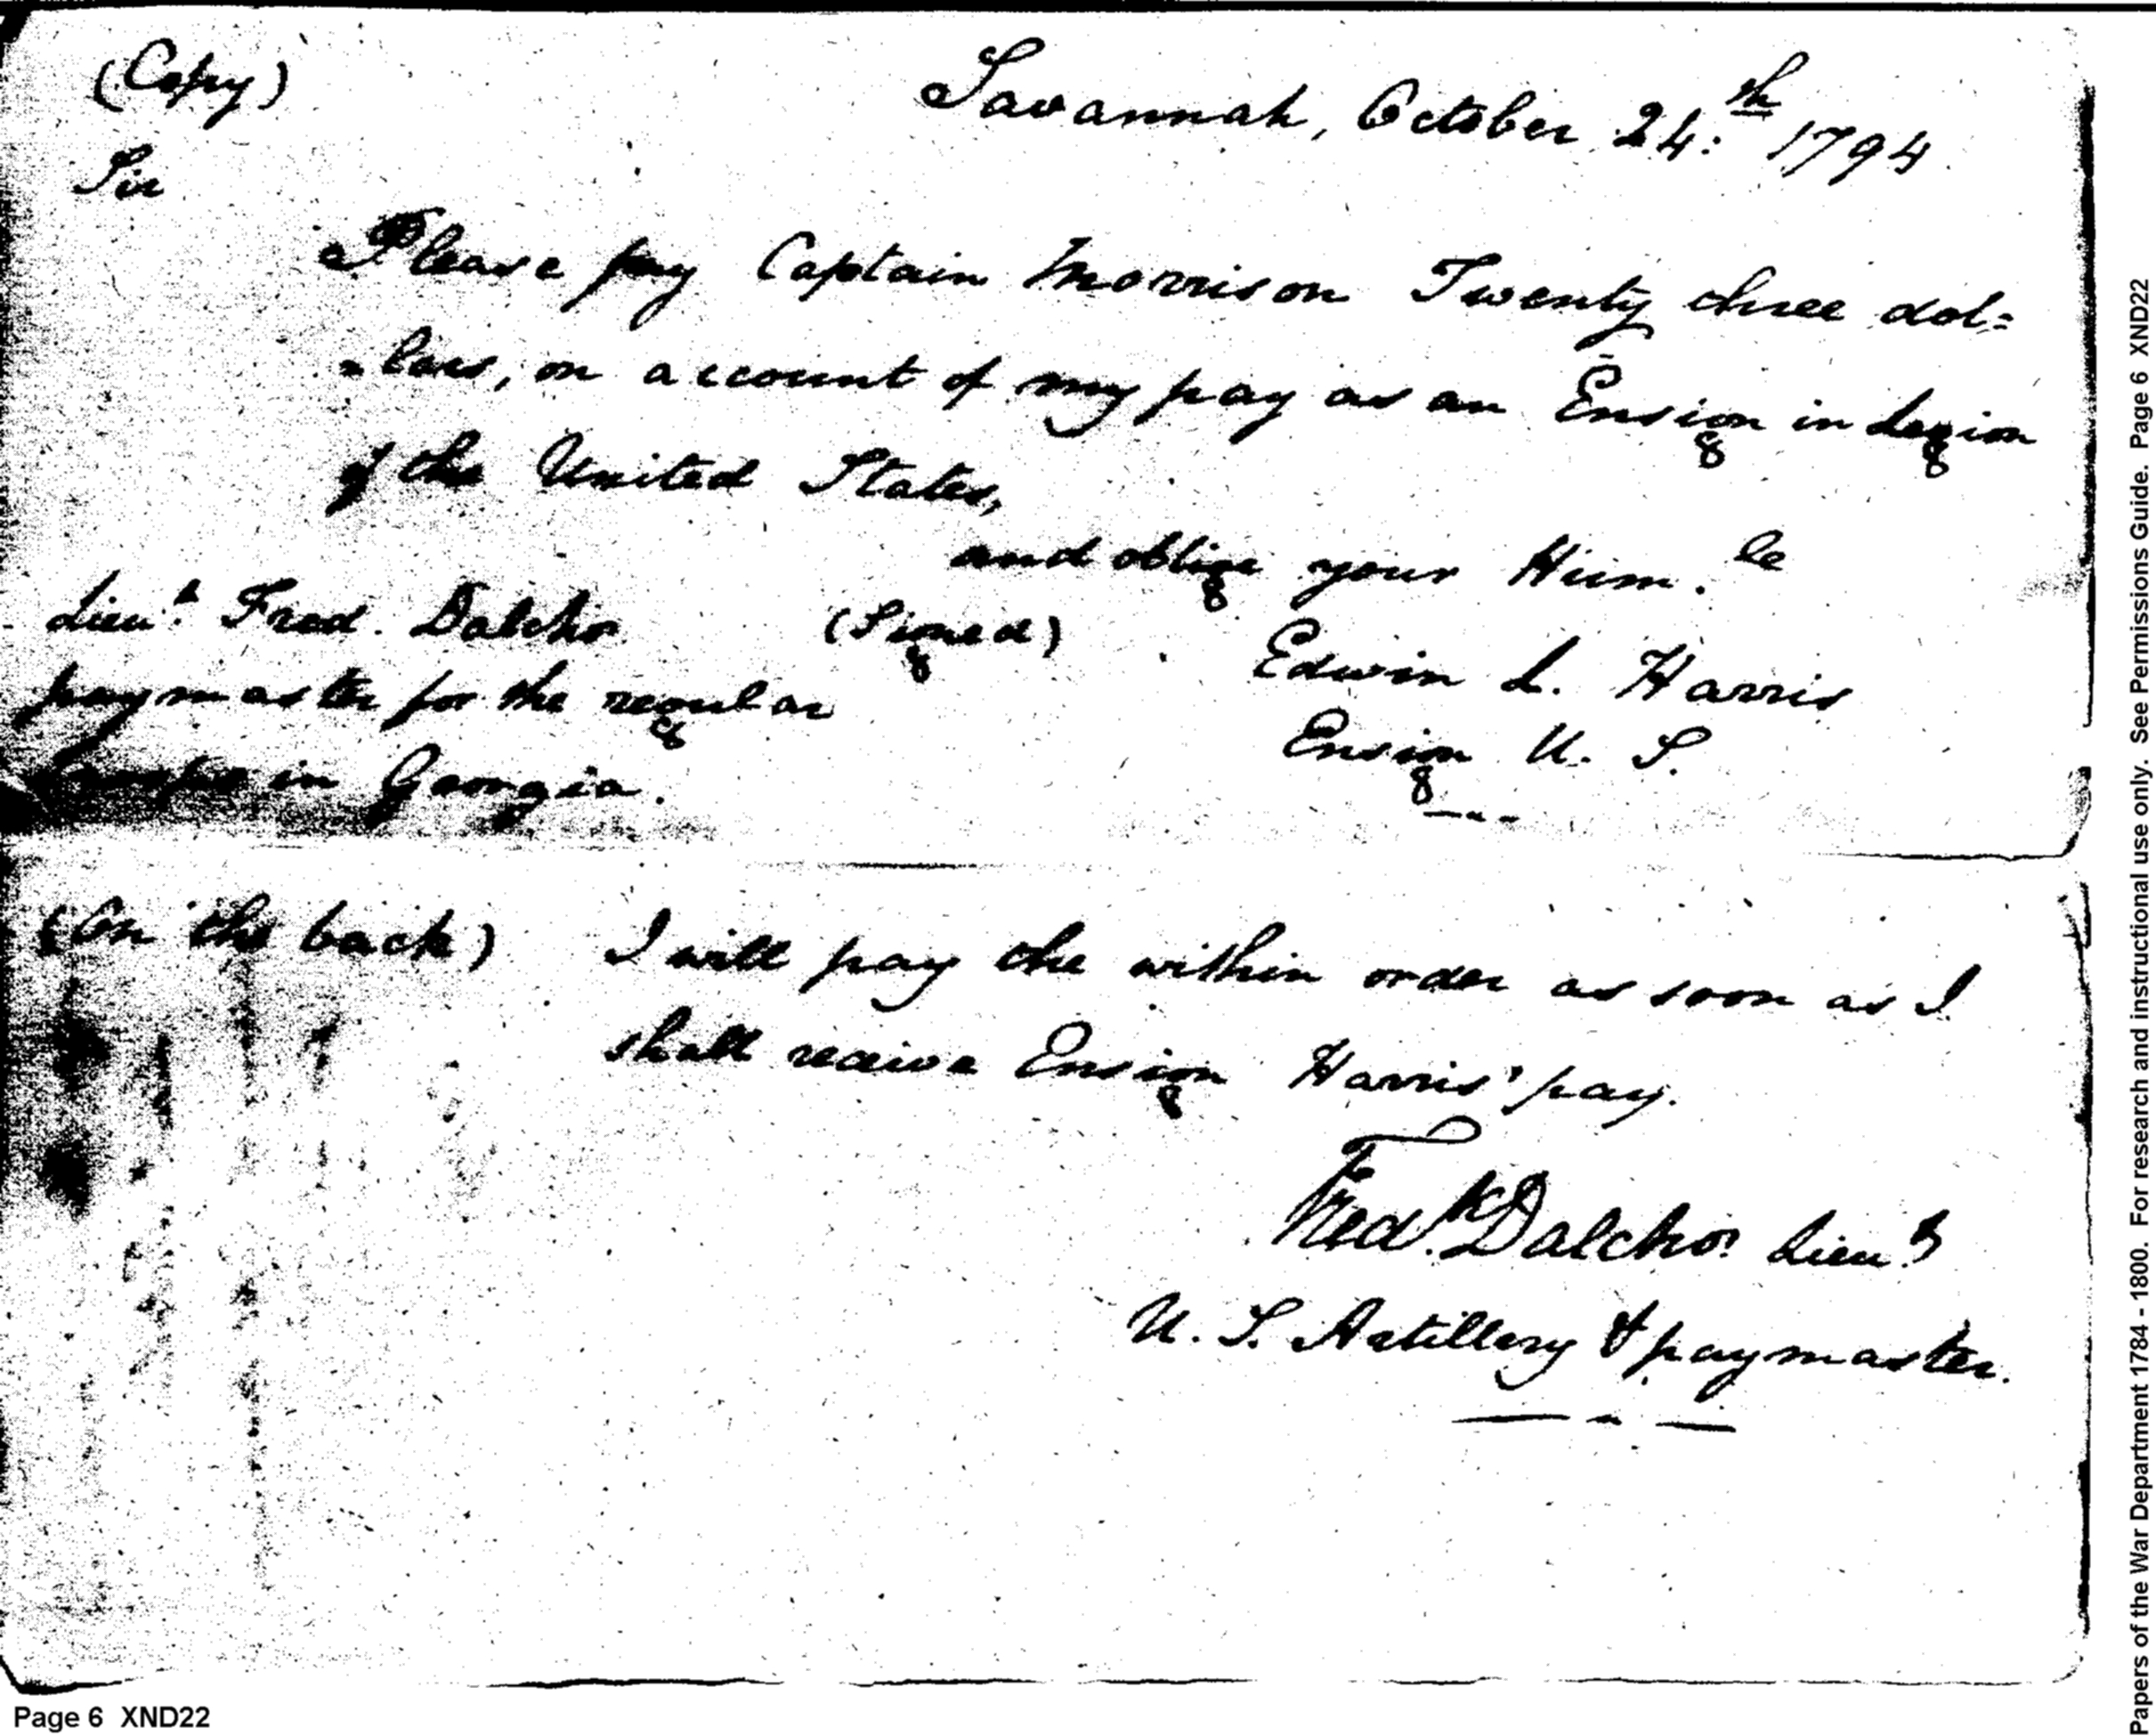 (Copy)
Savannah, October 24:th 1794
Sir
Please pay Captain Morrison Twenty three dol=
=lars, on account of my pay as an Ensign in Legion
of the United States,
and oblige your Hum.le
Lieu.t Fred. Dalcho (Signed) Edwin L. Harris
paymaster for the regular Ensign U. S.
troops in Georgia.
(On the back) I will pay the within order as soon as I
shall receive Ensign Harris' pay.
Fred.k Dalcho Lieu.t
U. S. Artillery & paymaster.
Page 6 XND22
Papers of the War Department 1784 - 1800. For research and instructional use only. See Permissions Guide. Page 6 XND22